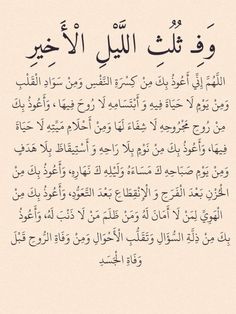 وَفِي ثُلُثِ اللَّيْلِ الْأَخِيرِ
اللَّهُمَّ إِنِّي أَعُوذُ بِكَ مِنْ كِسْرَةِ النَّفْسِ وَمِنْ سَوَادِ الْقَلْبِ
وَمِنْ يَوْمٍ لَا حَيَاةَ فِيهِ وَ أَبْتِسَامِهِ لَا رُوحَ فِيهَا ، وَأَعُوذُ بِكَ
مِنْ رُوحٍ مَجْرُوحِهِ لَا شِفَاءَ لَهَا وَمِنْ أَحْلَامٍ مَيِّتِهِ لَا حَيَاةَ
فِيهَا، وَأَعُوذُ بِكَ مِنْ نَوْمٍ بِلَا رَاحِهِ وَ أَسْتِيقَاظٍ بِلَا هَدَفٍ
وَمِنْ يَوْمٍ صَبَاحِهِ كَ مَسَاءَهُ وَلَيْلِهِ كَ نَهَارِهِ، وَأَعُوذُ بِكَ مِنْ
الْحُزْنِ بَعْدَ الْفَرَحِ وَ الْإِنْقِطَاعِ بَعْدَ التَّعَوُّدِ، وَأَعُوذُ بِكَ مِنْ
الْهَوِيِّ لِمَنْ لَا أَمَانَ لَهُ وَمَنْ ظَلَمَ مَنْ لَا ذَنْبَ لَهُ، وَأَعُوذُ
بِكَ مِنْ ذِلَّةِ السُّؤَالِ وَتَقَلُّبِ الْأَحْوَالِ وَمِنْ وَفَاةِ الرُّوحِ قَبْلَ
وَفَاةِ الْجَسَدِ